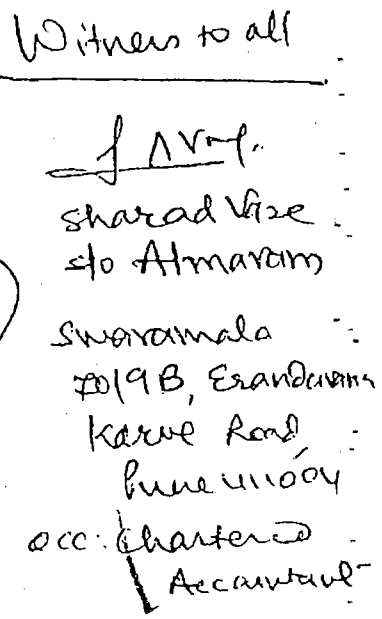 Witness to all
Sharad Vaze
s/o Atmaram
Swaramala
70/9B, Erandavana
Karve Road
Pune 411004
occ: Chartered
Accountant